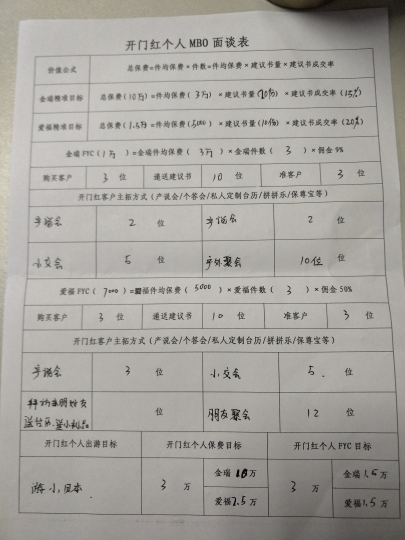 开门红个人 MBO 面谈表
价值公式 总保费=件均保费×件数=件均保费×建议书量×建议书成交率
金瑞精准目标 总保费(10万)=件均保费(3万)×建议书量(20份)×建议书成交率(15%)
爱福精准目标 总保费(1.5万)=件均保费(5000)×建议书量(10份)×建议书成交率(20%)
金瑞 FYC(1万)=金瑞件均保费(3万)×金瑞件数(3)×佣金 9%
购买客户 3 位 递送建议书 10 位 准客户 3 位
开门红客户主拓方式(产说会/个答会/私人定制台历/拼拼乐/保尊宝等)
2 位 2 位
小交会 5 位 户外聚会 10位 位
爱福 FYC(7000)=爱福件均保费(5000)×爱福件数(3)×佣金 50%
购买客户 3 位 递送建议书 10 位 准客户 3 位
开门红客户主拓方式(产说会/个答会/私人定制台历/拼拼乐/保尊宝等)
3 位 小交会 5 位
位 朋友聚会 12 位
开门红个人出游目标 开门红个人保费目标 开门红个人 FYC 目标
游小日本 3 万 金瑞 10万 3 万 金瑞 1.5万
爱福 7.5万 爱福 1.5万